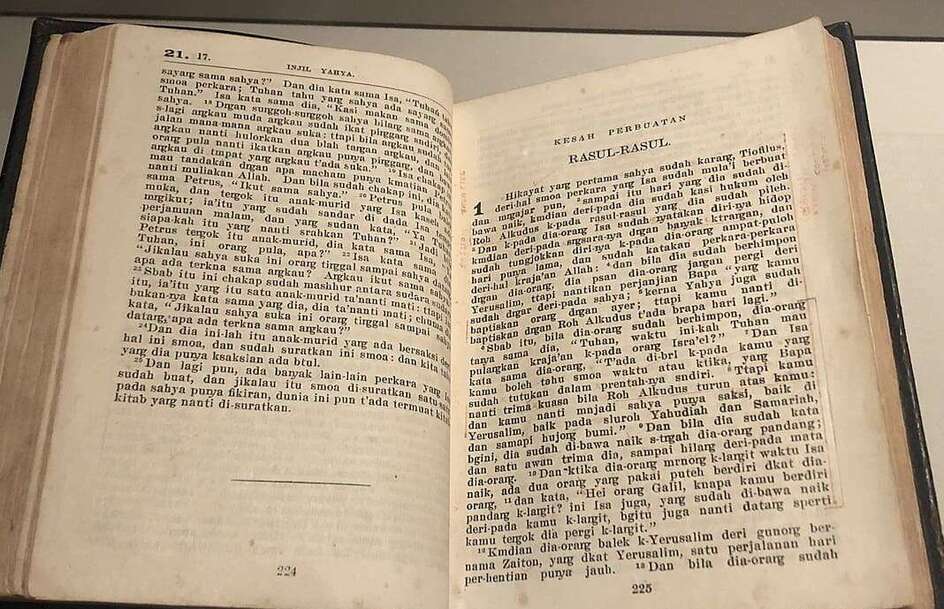 21. 17.
INJIL YAHYA.
sayarg sama sahya?" Dan dia kata sama Isa, "Tuhan,
smoa perkara; Tuhan tahu yarg sahya ada sayarg
Tuhan." Isa kata sama dia, "Kasi makan sama domba
sahya. ¹⁸Drgan surggoh-surggoh sahya bilarg sama
s-lagi argkau muda argkau sudah ikat pirggarg sndiri
jalan mana-mana argkau suka: ttapi bila argkau
argkau nanti hulorkan dua blah targan argkau, dan
orarg pula nanti ikatkan argkau punya pirggarg, dan
argkau di tmpat yarg argkau t'ada suka." ¹⁹Isa chakap
mau tandakan drgan apa macham punya kmatian dia
nanti muliakan Allah. Dan bila sudah chakap ini, dia
sama Petrus, "Ikut sama sahya." ²⁰Petrus pula
muka, dan tergok itu anak-murid yarg Isa kaseh
mrgikut; ia'itu yarg sudah sandar di dada Isa
perjamuan malam, dan yarg sudah kata, "Ya
siapa-kah itu yarg nanti srahkan Tuhan?" ²¹Jadi
Petrus tergok ini anak-murid, dia kata sama Isa,
Tuhan, ini orarg pula, apa?" ²²Isa kata sama
"Jikalau sahya suka ini orarg tirggal sampai sahya
apa ada terkna sama argkau? Argkau ikut sama
²³Sbab itu ini chakap sudah mashhur antara sudara
itu, ia'itu yarg itu satu anak-murid ta'nanti mati: ttapi
bukan-nya kata sama dia, dia ta'nanti mati; chuma
kata, "Jikalau sahya suka ini orarg tirggal sampai
datarg, apa ada terkna sama argkau?"
²⁴Dan dia ini-lah itu anak-murid yarg ada bersaksi
hal ini smoa, dan sudah suratkan ini smoa: dan kita
yarg dia punya ksaksian ada btul.
²⁵Dan lagi pun, ada banyak lain-lain perkara yarg
sudah buat, dan jikalau itu smoa di-suratkan satu-
pada sahya punya fikiran, dunia ini pun t'ada termuat
kitab yarg nanti di-suratkan.
224
KESAH PERBUATAN
RASUL-RASUL.
1 Hikayat yarg pertama sahya sudah karang, Tiofilus,
deri-hal smoa perkara yarg Isa sudah mula'i berbuat
dan mrgajar ²sampai itu hari yarg dia sudah di-
bawa naik, kmdian deri-pada dia sudah kasi hukum oleh
Roh Alkudus k-pada rasul-rasul yarg dia sudah pileh.
³Dan k-pada dia-orarg Isa sudah nyatakan diri-nya hidop
kmdian deri-pada srgsara-nya drgan banyak ktrargan, dan
sudah tunjokkan diri-nya k-pada dia-orarg ampat-puloh
hari punya lama, dan sudah katakan perkara-perkara
deri-hal kraja'an Allah: ⁴dan bila dia sudah berhimpon
drgan dia-orarg, dia psan dia-orarg jargan pergi deri
Yerusalim, ttapi nantikan perjanjian Bapa "yarg kamu
sudah drgar deri-pada sahya; ⁵kerna Yahya juga sudah
baptiskan orarg drgan ayer; ttapi kamu nanti di-
baptiskan drgan Roh Alkudus t'ada brapa hari lagi."
⁶Sbab itu, bila dia-orarg sudah berhimpon, dia-orarg
tanya sama dia, "Tuhan, waktu ini-kah Tuhan mau
pulargkan kraja'an k-pada orarg Isra'el?" ⁷Dan Isa
kata sama dia-orarg, "T'ada di-bri k-pada kamu yarg
kamu boleh tahu smoa waktu atau ktika, yarg Bapa
sudah tntukan dalam prentah-nya sndiri. ⁸Ttapi kamu
nanti trima kuasa bila Roh Alkudus turun atas kamu:
dan kamu nanti mnjadi sahya punya saksi, baik di
Yerusalim, baik pada sluroh Yahudiah dan Samariah,
dan sampai hujorg bumi." ⁹Dan bila dia sudah kata
bgini, dia sudah di-bawa naik s-trgah dia-orarg pandarg;
dan satu awan trima dia, sampai hilarg deri-pada mata
dia-orarg. ¹⁰Dan ktika dia-orarg mrnorg k-largit waktu Isa
naik, ada dua orarg yarg pakai puteh berdiri dkat dia-
orarg, ¹¹dan kata, "Hei orarg Galil, knapa kamu berdiri
pandarg k-largit? ini Isa juga, yarg sudah di-bawa naik
deri-pada kamu k-largit, bgitu juga nanti datarg sperti
kamu tergok dia pergi k-largit."
¹²Kmdian dia-orarg balek k-Yerusalim deri gunorg ber-
nama Zaiton, yarg dkat Yerusalim, satu perjalanan hari
per-hentian punya jauh. ¹³Dan bila dia-orarg sudah
225